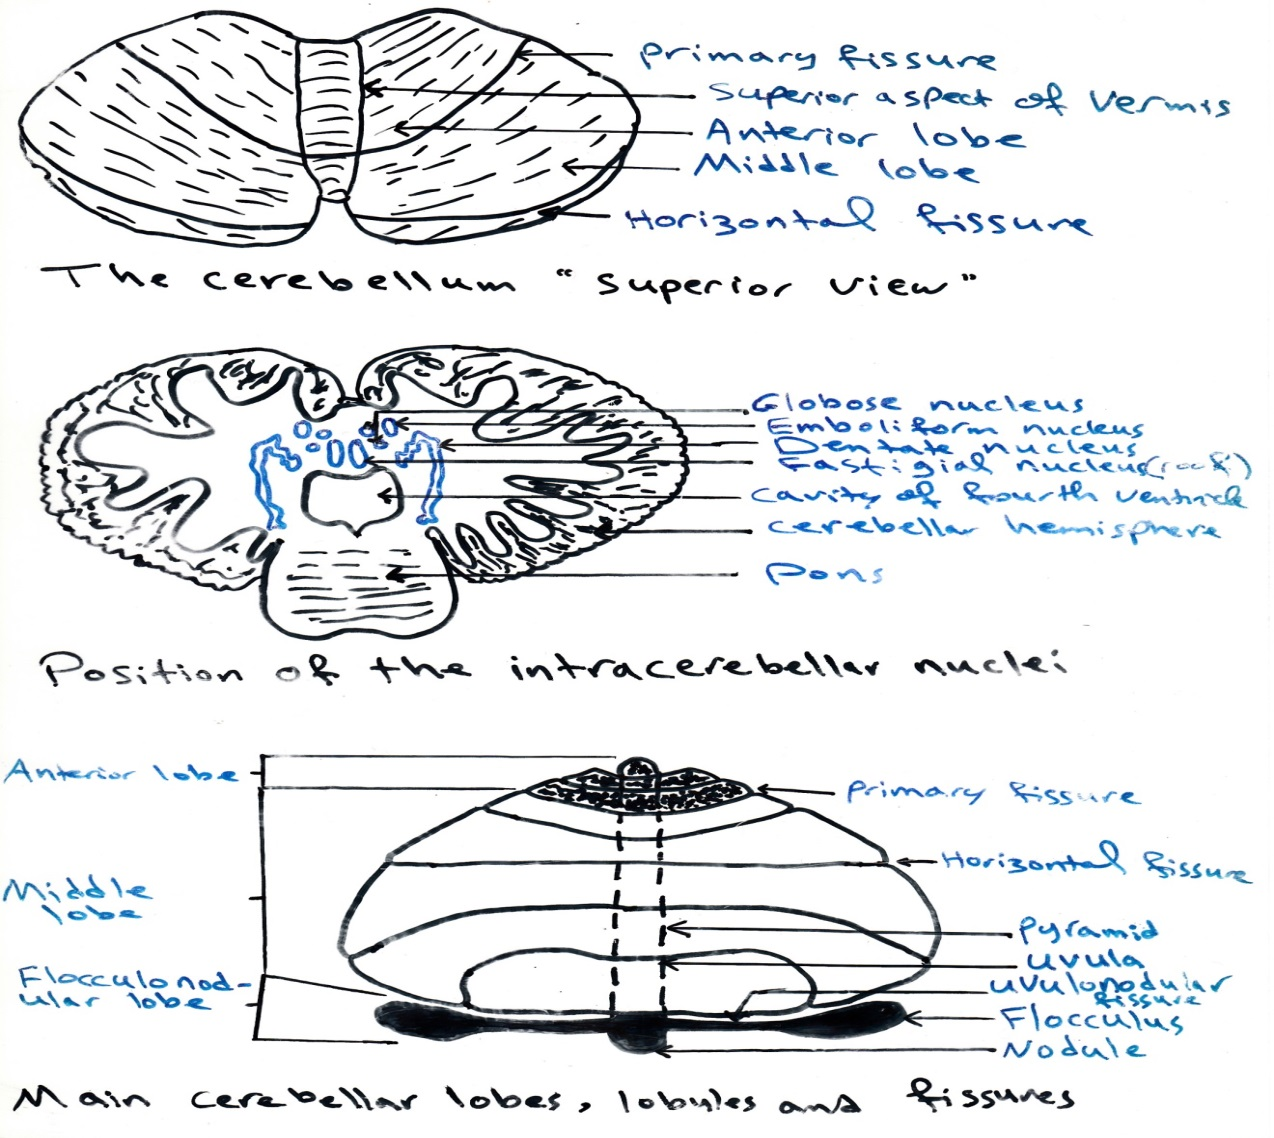 Primary fissure
Superior aspect of vermis
Anterior lobe
Middle lobe
Horizontal fissure
The cerebellum "Superior view"
Globose nucleus
Emboliform nucleus
Dentate nucleus
Fastigial nucleus (roof)
cavity of fourth ventricle
cerebellar hemisphere
Pons
Position of the intracerebellar nuclei
Anterior lobe
Primary fissure
Horizontal fissure
Middle
lobe
pyramid
uvula
Flocculonod-
ular lobe
uvulonodular
fissure
Flocculus
Nodule
Main cerebellar lobes, lobules and fissures